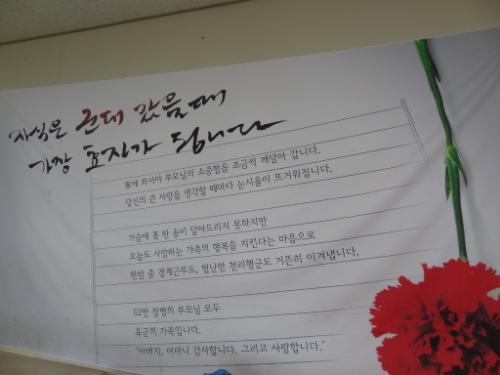 자식은 군대 갔을때
가장 효자가 됩니다
軍에 와서야 부모님의 소중함을 조금씩 깨달아 갑니다.
당신의 큰 사랑을 생각할 때마다 눈시울이 뜨거워집니다.
가슴에 꽃 한 송이 달아드리지 못하지만
오늘도 사랑하는 가족의 행복을 지킨다는 마음으로
한밤 중 경계근무도, 험난한 천리행군도 거뜬히 이겨냅니다.
52만 장병의 부모님 모두
육군의 가족입니다.
"아버지, 어머니 감사합니다. 그리고 사랑합니다."